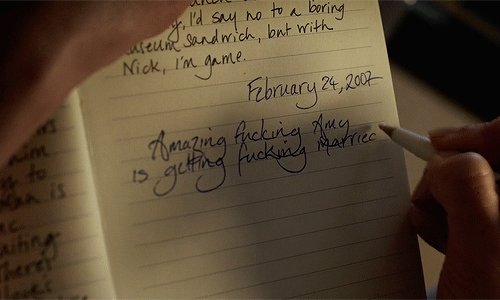 I'd say no to a boring
museum sandwich, but with
Nick, I'm game.
February 24, 2007
Amazing fucking Amy
is getting fucking married
to
is
aiting
There's
loves